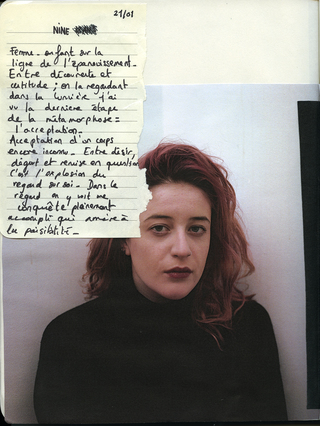 21/01
NINE
Femme-enfant sur la
ligne de l'épanouissement.
Entre découverte et
certitude ; en la regardant
dans la lumière j'ai
vu la dernière étape
de la métamorphose :
l'acceptation.
Acceptation d'un corps
encore inconnu. Entre désir,
dégoût et remise en question
C'est l'explosion du
regard sur soi. Dans le
regard on y voit une
conquête pleinement
accompli qui amène à
la paisibilité.